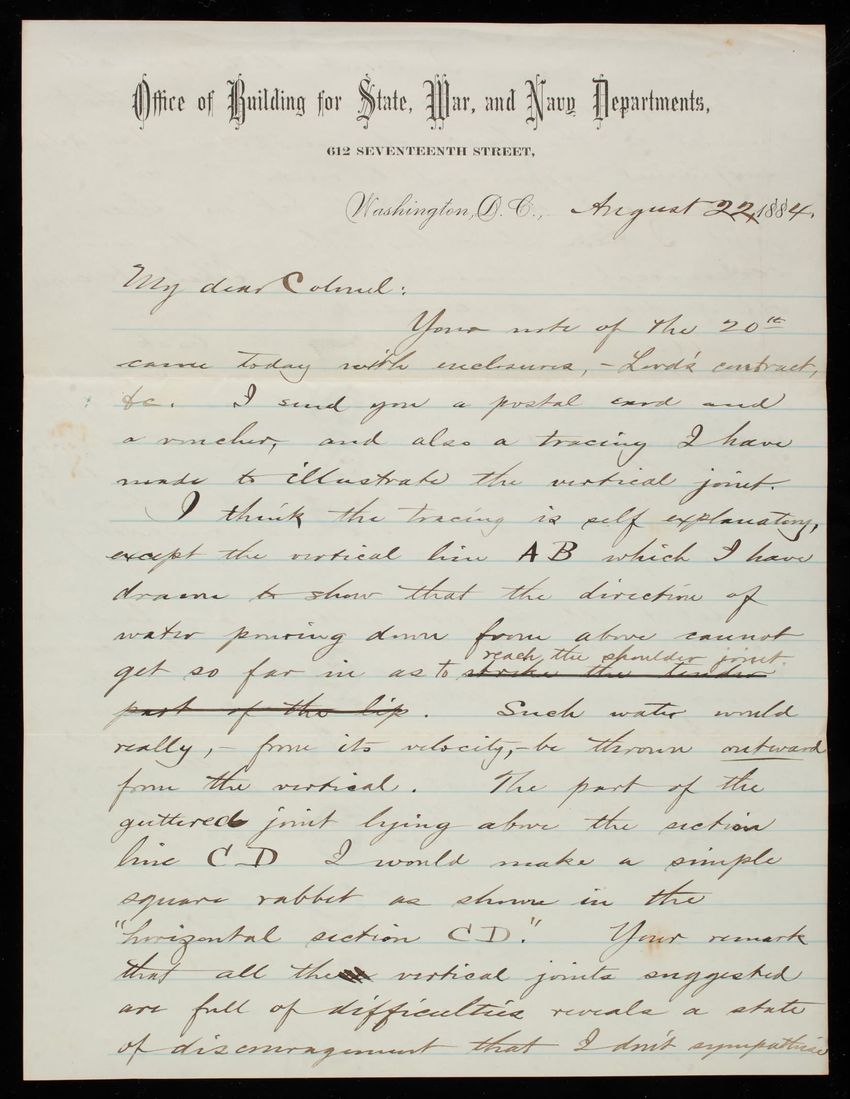 Office of Building for State, War, and Navy Departments,
612 SEVENTEENTH STREET,
Washington, D. C., August 22, 1884.
My dear Colonel:
Your note of the 20th
came today with enclosures, – Lord's contract,
&c. I send you a postal card and
a voucher, and also a tracing I have
made to illustrate the vertical joint.
I think the tracing is self explanatory,
except the vertical line A B which I have
drawn to show that the direction of
water pouring down from above cannot
reach the shoulder joint.
get so far in as to strike the tender
part of the lip. Such water would
really, – from its velocity, – be thrown outward
from the vertical. The part of the
guttered joint lying above the section
line C D I would make a simple
square rabbet as shown in the
"horizontal section C D." Your remark
that all the vertical joints suggested
are full of difficulties reveals a state
of discouragement that I don't sympathise